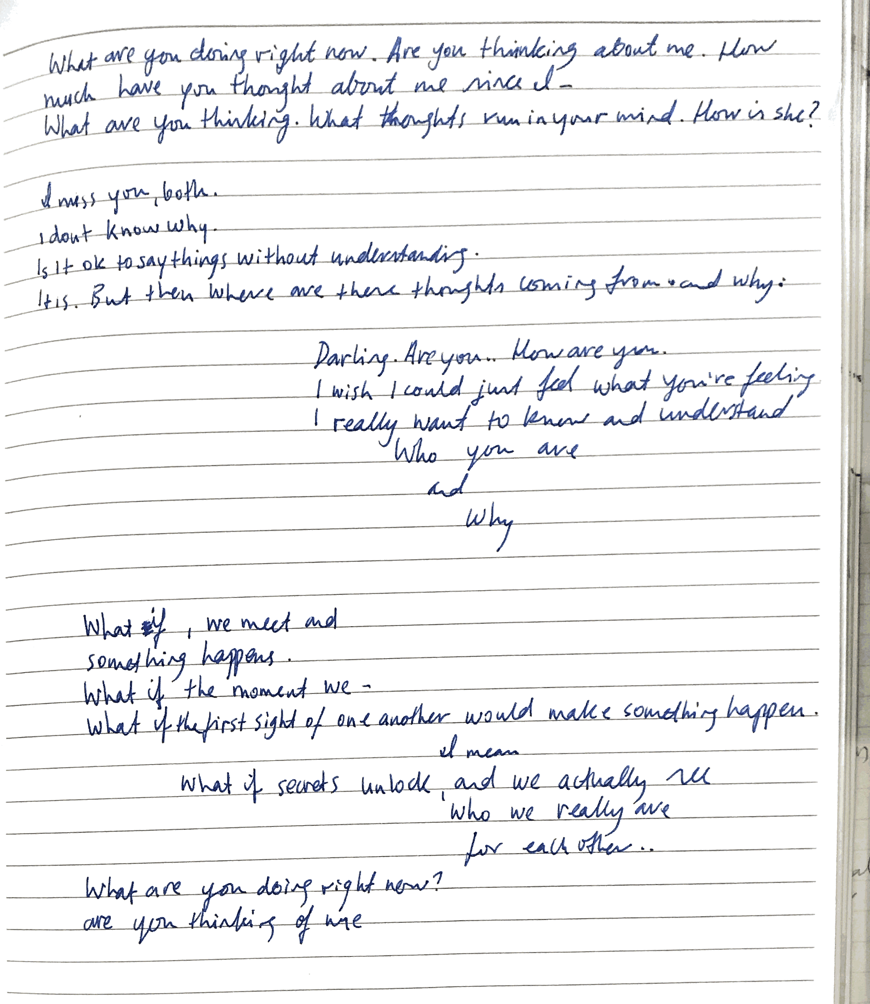 What are you doing right now. Are you thinking about me. How
much have you thought about me since I –
What are you thinking. What thoughts run in your mind. How is she?
I miss you, both.
I dont know why.
Is it ok to say things without understanding.
It is. But then where are these thoughts coming from. and why.
Darling. Are you.. How are you.
I wish I could just feel what you're feeling
I really want to know and understand
Who you are
and
Why
What if, we meet and
something happens.
What if the moment we –
What if the first sight of one another would make something happen.
I mean
What if secrets unlock, and we actually see
Who we really are
for each other..
What are you doing right now?
are you thinking of me